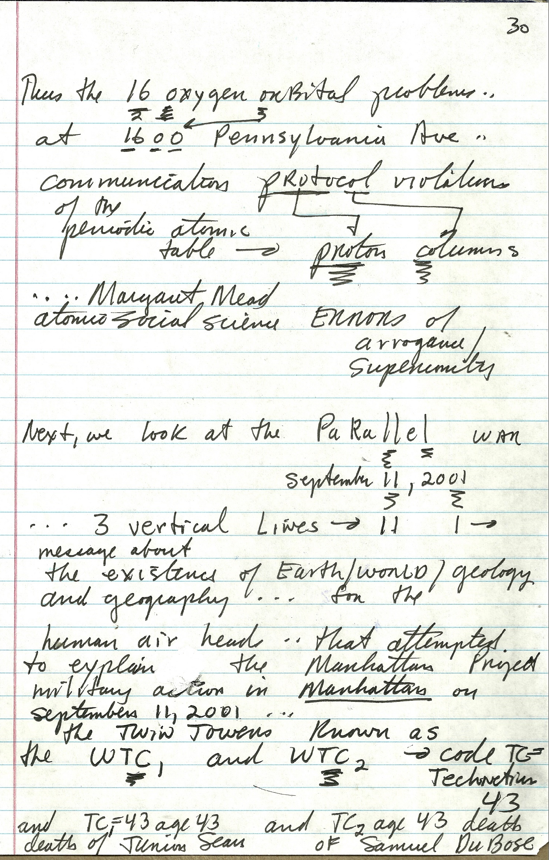 30
Thus the 16 oxygen oxBital problems..
at 1600 Pennsylvania Ave ..
communication pRotocol violations
of the
periodic atomic
table → proton columns
.... Margaret Mead
atomic social science ERRORS of
arrogance/
Superiority
Next, we look at the PaRallel WAR
september 11, 2001
... 3 vertical Lines → 11 1 →
message about
the existence of Earth/WORLD/geology
and geography ... for the
human air heads .. that attempted
to explain the Manhattan Project
military action in Manhattan on
september 11, 2001 ...
the Twin Towers Known as
the WTC1 and WTC2 → code TC=
Technetium
43
and TC1=43 age 43 and TC2 age 43 death
death of Junior Seau of Samuel DuBose